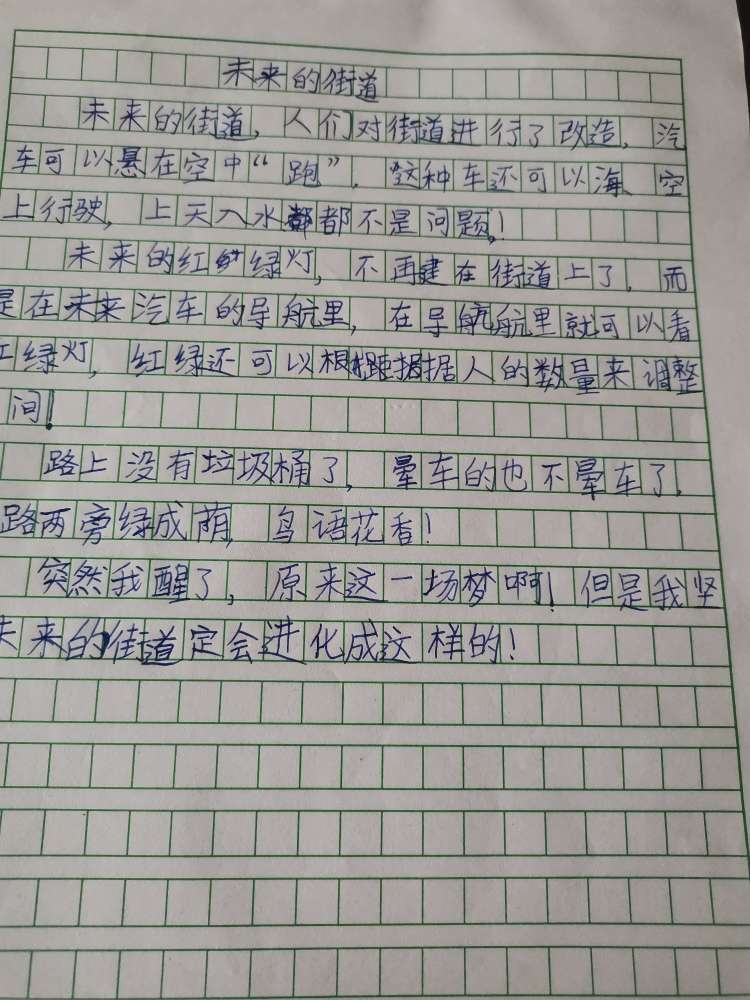 未来的街道
未来的街道，人们对街道进行了改造，汽
车可以悬在空中“跑”，这种车还可以海、空
上行驶，上天入水都不是问题！
未来的红绿灯，不再建在街道上了，而
是在未来汽车的导航里，在导航里就可以看
红绿灯，红绿还可以根据人的数量来调整
间！
路上没有垃圾桶了，晕车的也不晕车了，
路两旁绿成荫，鸟语花香！
突然我醒了，原来这一场梦啊！但是我坚
未来的街道定会进化成这样的！